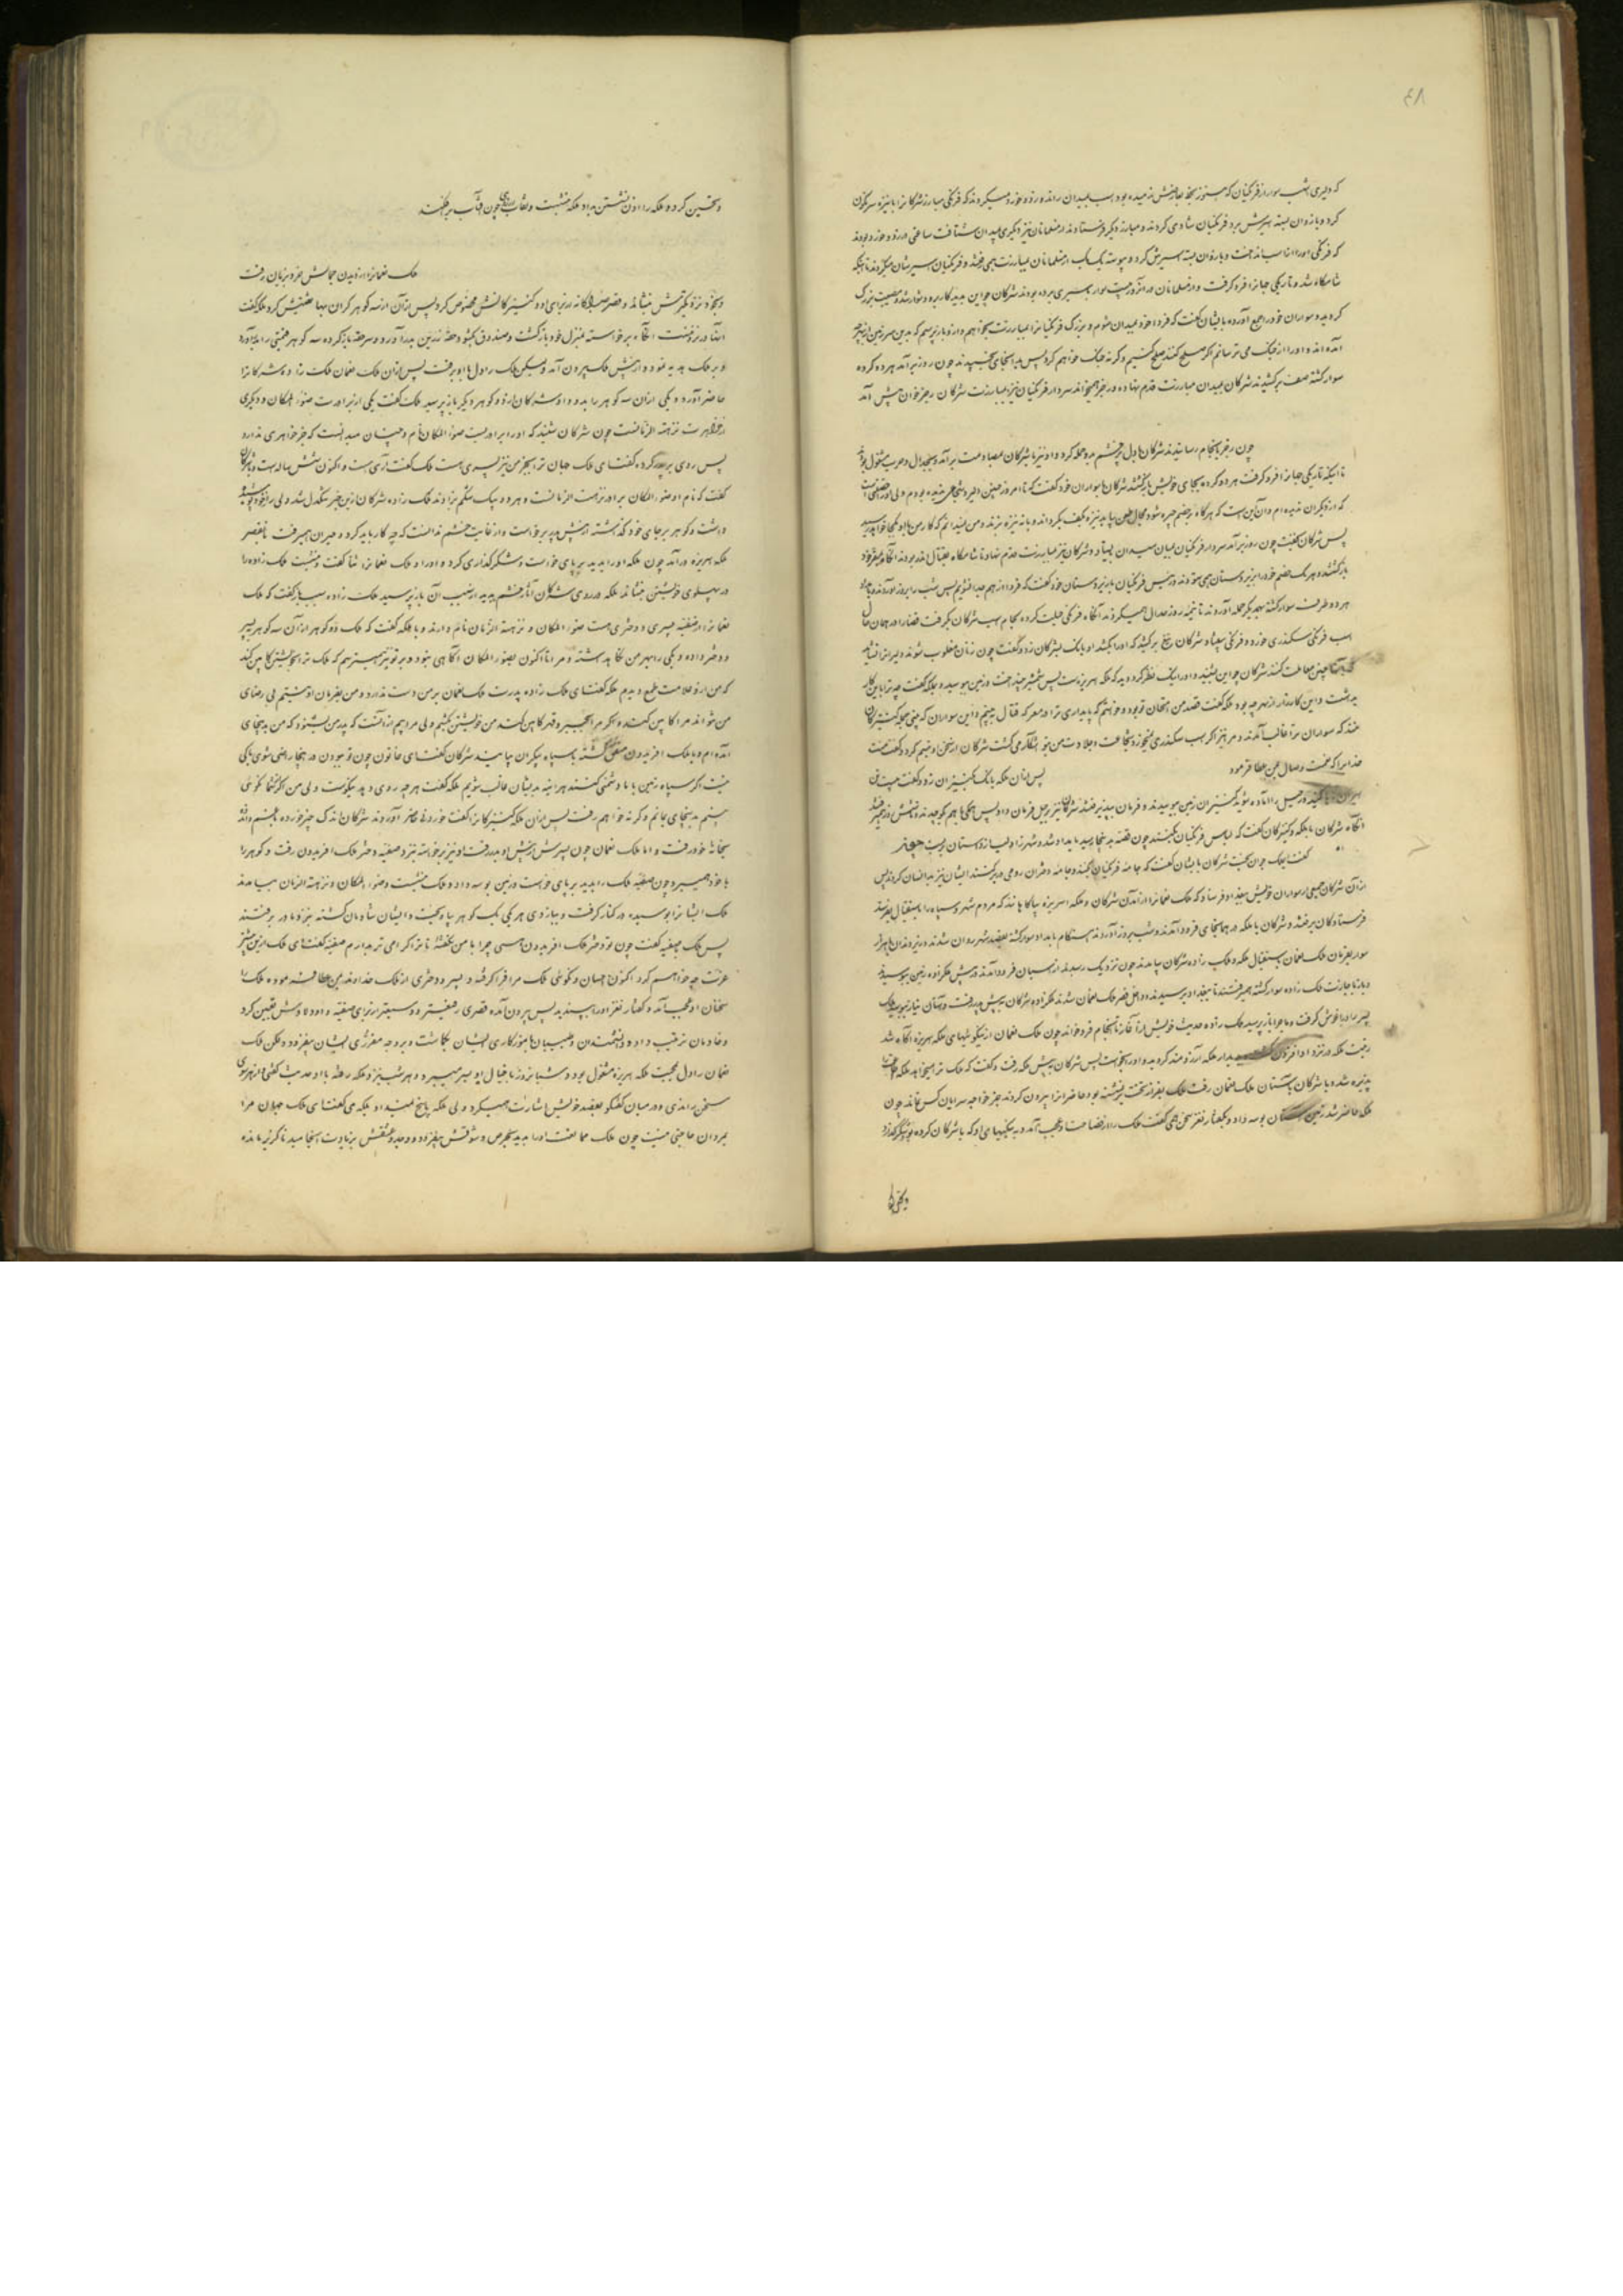 که دلیری
کرد و بازوان بسته اسیرش برد فرنگیان شادی کردند و مبارز دیگر فرستادند از مسلمانان نیز دیگری بمیدان شتافت ساعتی در زد و خورد بودند
که فرنگی او را از اسب بینداخت و بازوان بسته اسیرش کرد و پیوسته یک یک از مسلمانان بمبارزت همی رفتند و فرنگیان اسیرشان میکردند تا اینکه
شامگاه شد و تاریکی جهانرا فرو گرفت و از مسلمانان در آنروز بیست سوار باسیری برده بودند شرکان چو این بدید کار برو دشوار شد
گردید و سواران خود را جمع آورده بایشان گفت که فردا خود بمیدان شوم و بزرگ فرنگیانرا بمبارزت بخواهم
آمده اند و او را از جنگ می ترسانم اگر صلح کنند صلح کنیم و گرنه جنگ خواهم کرد پس بدانجای بخسبیدند چون روز برآمد هر دو گروه
سوار گشته صف برکشیدند شرکان بمیدان مبارزت قدم نهاده و رجز همیخواند سردار فرنگیان نیز بمبارزت شرکان رجز خوان پیش آمد
چون رجز بانجام رسانیدند شرکان با دل پر خشم برو حمله کرد و او نیز با شرکان
تا اینکه تاریکی جهانرا فرو گرفت هر دو گروه بجای خویش بازگشتند شرکان با سواران خود گفت که تا امروز چنین دلیر و شجاع ندیده بودم
که از دیگران ندیده ام و آن این است که هرگاه بر خصم چیره شود
پس شرکان بخفت چون روز برآمد سردار فرنگیان بمیان میدان بیستاد و شرکان نیز بمبارزت قدم نهاد تا شامگاه بقتال اندر بودند آنگاه بمقر خود
بازگشتند و هر یک خصم خود را بزیردستان همی ستودند و رئیس فرنگیان با زیردستان خود گفت که فردا از هم جدا شویم پس شب را بروز آوردند
هر دو طرف سوار گشته بهم دیگر حمله آوردند تا نیمه روز جدال همیکردند آنگاه فرنگی حیلت کرده لجام اسب شرکان بگرفت
اسب فرنگی سکندری خورده فرنگی بیفتاد و شرکان تیغ برکشید که او را بکشد او بانک بشرکان زد و گفت چون زنان مغلوب شوند
شرکان چو این بشنید و او را نیک نظر کرد دید که ملکه ابریزه است پس شمشیر بینداخت و زمین ببوسید و بملکه گفت چه ترا باین کار
بداشت و این کارزار از بهر چه بود ملکه گفت قصد من امتحان تو بود و خواستم که پایداری ترا در معرکه قتال ببینم و این سواران که بینی همه کنیزکان
منند که بسواران تو غالب آمدند و مرا نیز اگر اسب سکندری نمیخورد شجاعت و جلادت من بتو آشکار می گشت شرکان از سخن او تبسم کرد و گفت منت
خدایرا که نعمت وصال بمن عطا فرمود
پس از آن ملکه بانک بکنیزان زد و گفت بیست تن
رحیل را آماده شوید کنیزان زمین ببوسیدند و فرمان بپذیرفتند شرکان نیز برحیل فرمان داد
آنگاه شرکان بملکه و کنیزکان گفت که لباس فرنگیان بکنند چون قصه بدینجا رسید بامداد شد و شهرزاد لب از داستان ببست
گفت ایملک جوان بخت شرکان بایشان گفت که جامه فرنگیان بکنند و جامه دختران رومی در بر کنند ایشان نیز بدانسان کردند پس
از آن شرکان جمعی از سواران خویش ببغداد فرستاد که ملک نعمانرا از آمدن شرکان و ملکه ابریزه بیاگاهانند که مردم شهر و سپاه را باستقبال بفرستد
فرستادگان برفتند و شرکان با ملکه در همانجای فرود آمدند و شب بروز آوردند هنگام بامداد سوار گشته بقصد شهر روان شدند
سوار بفرمان ملک نعمان باستقبال ملکه و ملک زاده شرکان بیامدند چون نزدیک رسیدند از اسبان فرود آمدند و پیش ملکزاده زمین ببوسیدند
و باز با جازت ملک زاده سوار گشته همیرفتند تا ببغداد برسیدند و داخل قصر ملک نعمان شدند ملکزاده شرکان به پیش پدر رفت
پسر را در آغوش گرفت و ماجرا باز پرسید ملک زاده حدیث خویش از آغاز تا انجام فرو خواند چون ملک نعمان از نیکوئیهای ملکه ابریزه آگاه شد
رغبت ملکه در نزد او افزون بدیدار ملکه آرزومند گردید و او را بخواست پس شرکان پیش ملکه رفت و گفت که ملک ترا میخواهد ملکه
پذیره شد و با شرکان بآستان ملک نعمان رفت ملک بفراز تخت بنشسته بود حاضرانرا بیرون کردند بجز خواجه سرایان کس نماند چون
ملکه حاضر شد زمین آستان بوسه داد و بگفتار نغز سخن همی گفت ملک را از فصاحت او عجب آمد و به نیکیهای او که با شرکان کرده بود شکر گذارد
و تحسین کرد و ملکه را اذن نشستن بداد ملکه بنشست و نقاب از روی چون آفتاب برفکند
ملک نعمانرا از دیدن جمالش خرد بزیان رفت
و بخود نزدیکترش بنشاند و قصر جداگانه از برای او و کنیزکانش مخصوص کرد پس از آن از سه گوهر گران بها تفتیش کرد ملکه گفت
اینها در نزد منست آنگاه برخاسته بمنزل خود بازگشت و صندوق بگشود حقه زرین بدر آورد و سر حقه باز کرده سه گوهر قیمتی را بدر آورد
و بر ملک هدیه نمود و از پیش ملک بیرون آمد ولیکن ملک را دل با او برفت پس از آن ملک نعمان ملک زاده شرکانرا
حاضر آورد و یکی از آن سه گوهر را بدو داد شرکان از دو گوهر دیگر باز پرسید ملک گفت یکی از برادرت ضوء المکان و دیگری
از خواهرت نزهة الزمانست چون شرکان شنید که او را برادریست ضوء المکان نام و چنان میدانست که جز خواهری ندارد
پس روی بر پدر کرده گفت ای ملک جهان ترا بجز من نیز پسری هست ملک گفت آری هست و اکنون شش ساله است
گفت که نام او ضوء المکان برادر نزهت الزمانست و هر دو بیک شکم بزادند ملک زاده شرکان ازین خبر تنگدل شد ولی راز خود پوشیده
داشت و گوهر بر جای خود گذاشته از پیش پدر برخاست و از غایت خشم ندانست که چه کار باید کرد و حیران همیرفت تا بقصر
ملکه ابریزه درآمد چون ملکه او را بدید بر پای خواست و شکر گذاری کرد و او را و ملک نعمانرا ثنا گفت و بنشست ملک زاده را
در پهلوی خویشتن بنشاند ملکه در روی شرکان آثار خشم بدید از سبب آن باز پرسید ملک زاده سبب باز گفت که ملک
نعمانرا از صفیه پسری و دختری هست ضوء المکان و نزهة الزمان نام دارند و با ملکه گفت که ملک دو گوهر از آن سه گوهر به پسر
و دختر داده و یکی را بهر من نگاه داشته و مرا تا اکنون بضوء المکان آگاهی نبود و بر تو نیز همی ترسم که ملک ترا بخویشتن کابین کند
که من ازو علامت طمع دیدم ملکه گفت ای ملک زاده پدرت ملک نعمان بر من دست ندارد و من بفرمان او نیستم بی رضای
من نتواند مرا کابین کند و اگر مرا بجبر و قهر کابین کند من خویشتن بکشم ولی مرا بیم از آنست که پدر من بشنود که من بدینجای
آمده ام و با ملک افریدون متفق گشته با سپاه بیکران بیایند شرکان گفت ای خاتون چون تو ببودن در اینجا راضی شوی باکی
نیست اگر سپاه زمین با ما دشمنی کنند هر آینه بدیشان غالب شویم ملکه گفت هر چه روی دهد نیکوست ولی من اگر از شما نکوئی
بینم بدینجای بمانم و گرنه خواهم رفت پس از آن ملکه کنیزکانرا گفت خوردنی حاضر آوردند شرکان اندک چیز خورده
بخانه خود رفت و اما ملک نعمان چون پسرش از پیش او بدر رفت او نیز برخاسته بنزد صفیه دختر ملک افریدون رفت و گوهر را
با خود همیبرد چون صفیه ملک را بدید بر پای خواست و زمین بوسه داد و ملک بنشست و ضوء المکان و نزهة الزمان بیامدند
ملک ایشانرا بوسیده در کنار گرفت و ببازوی هر یکی یک گوهر بیاویخت و ایشان شادمان گشته بنزد مادر برفتند
پس ملک بصفیه گفت چون تو دختر ملک افریدون هستی چرا با من نگفته تا ترا گرامی تر بدارم صفیه گفت ای ملک ازین بیشتر
عزت چه خواهم کرد اکنون احسان و نکوئی ملک مرا فرا گرفته و پسر و دختری از ملک خداوند بمن عطا فرموده ملک را
سخنان او عجب آمد و گفتار نغز او را بپسندید پس بیرون آمده قصری رفیعتر و وسیعتر از برای صفیه و اولاد او معین کرد
و خادمان ترتیب داده و دانشمندان و طبیبان بآموزگاری ایشان بگماشت و بر وجه مقرری ایشان بیفزود ولکن ملک
نعمان را دل بمحبت ملکه ابریزه مشغول بود و شبانروز با خیال او بسر میبرد و هر شب بنزد ملکه رفته با او حدیث گفتی از هر دری
سخن راندی و در میان گفتگو بقصد خویش اشارت همیکرد ولی ملکه پاسخ نمیداد بلکه می گفت ای ملک جهان مرا
بمردان حاجتی نیست چون ملک ممانعت او را بدید بحرص و شوقش بیفزود و وجد و عشقش بزیادت انجامید ناگزیر مانده